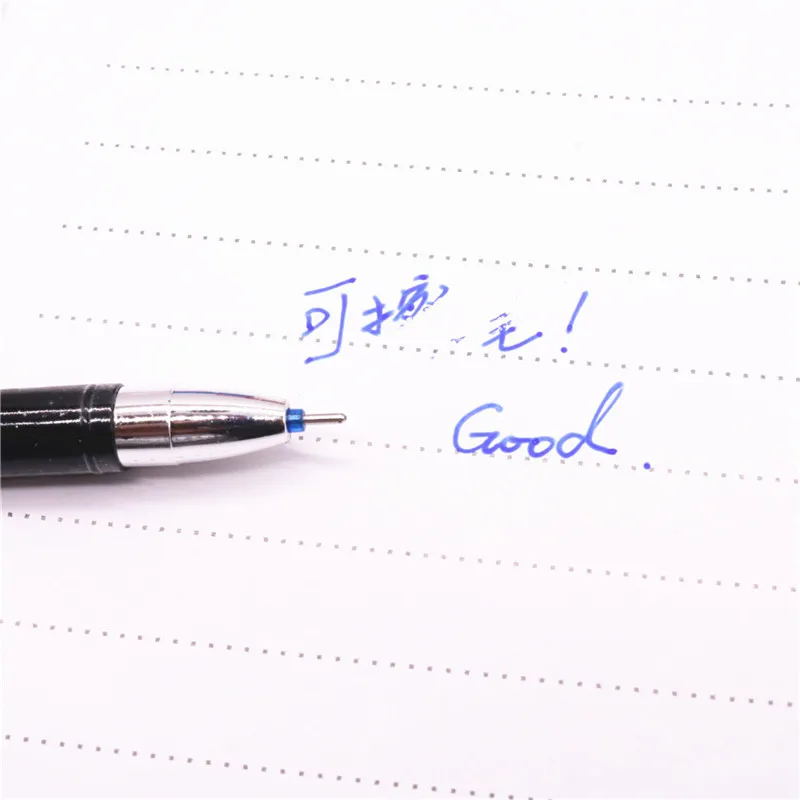 可擦 笔!
Good.